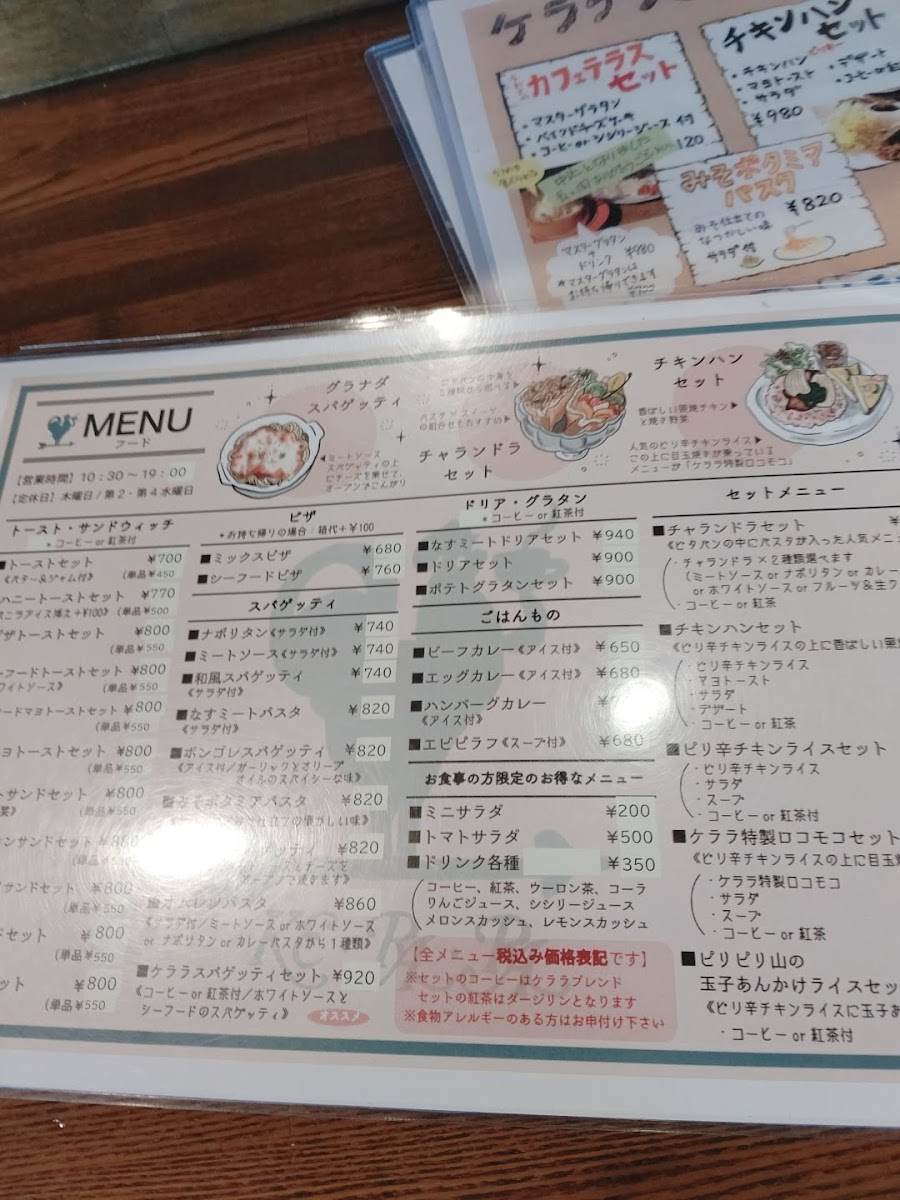 カフェテラス
セット
・マスターグラタン
・コーヒー or シシリージュース 付
120
チキンハン
セット
・チキンハン
・マヨトースト
・サラダ
・デザート
・コーヒー or 紅
¥980
みそポタミア
パスタ
¥820
みそ仕立ての
なつかしい味
サラダ付
マスターグラタン
+
ドリンク ¥980
*マスターグラタンは
お持ち帰りできます
¥700
MENU
フード
【営業時間】10:30〜19:00
【定休日】木曜日/第2・第4水曜日
グラナダ
スパゲッティ
◀ミートソース
スパゲッティの上
にチーズを乗せて、
オーブンでこんがり
パスタ×スイーツ
の組合せもおすすめ▶
チャランドラ
セット
チキンハン
セット
香ばしい照焼チキン▶
と焼き野菜
人気のピリ辛チキンライス▶
この上に目玉焼きが乗っている
メニューが「ケララ特製ロコモコ」
トースト・サンドウィッチ
*コーヒー or 紅茶付
■トーストセット ¥700
《バター&ジャム付》 (単品¥450
ハニートーストセット ¥770
バニラアイス添え+¥100》 (単品¥500
ザトーストセット ¥800
(単品¥550
ーフードトーストセット ¥800
ワイトソース》 (単品¥550
ードマヨトーストセット ¥800
(単品¥550
ヨトーストセット ¥800
(単品¥550
トサンドセット ¥800
(単品¥550
ンサンドセット
サンドセット ¥800
(単品¥550
ドセット ¥800
(単品¥550
セット ¥800
(単品¥550
ピザ
*お持ち帰りの場合:箱代+¥100
■ミックスピザ ¥680
■シーフードピザ ¥760
スパゲッティ
■ナポリタン《サラダ付》 ¥740
■ミートソース《サラダ付》 ¥740
■和風スパゲッティ ¥740
《サラダ付》
■なすミートパスタ ¥820
《サラダ付》
■ボンゴレスパゲッティ ¥820
《アイス付/ガーリックとオリーブ
オイルのスパイシーな味》
■みそポタミアパスタ ¥820
仕立ての懐かしい味》
ゲッティ ¥820
とチーズを
オーブンで焼きます》
■オムレツパスタ ¥860
《サラダ付/ミートソース or ホワイトソース
or ナポリタン or カレーパスタから1種類》
■ケララスパゲッティセット ¥920
《コーヒー or 紅茶付/ホワイトソースと
シーフードのスパゲッティ》
オススメ
ドリア・グラタン
*コーヒー or 紅茶付
■なすミートドリアセット ¥940
■ドリアセット ¥900
■ポテトグラタンセット ¥900
ごはんもの
■ビーフカレー《アイス付》 ¥650
■エッグカレー《アイス付》 ¥680
■ハンバーグカレー ¥
《アイス付》
■エビピラフ《スープ付》 ¥680
お食事の方限定のお得なメニュー
■ミニサラダ ¥200
■トマトサラダ ¥500
■ドリンク各種 ¥350
コーヒー、紅茶、ウーロン茶、コーラ
りんごジュース、シシリージュース
メロンスカッシュ、レモンスカッシュ
【全メニュー税込み価格表記です】
※セットのコーヒーはケララブレンド
セットの紅茶はダージリンとなります
※食物アレルギーのある方はお申付け下さい
セットメニュー
■チャランドラセット ¥
《ピタパンの中にパスタが入った人気メニュ
・チャランドラ×2種類選べます
(ミートソース or ナポリタン or カレー
or ホワイトソース or フルーツ&生ク
・コーヒー or 紅茶
■チキンハンセット
《ピリ辛チキンライスの上に香ばしい照
・ピリ辛チキンライス
・マヨトースト
・サラダ
・デザート
・コーヒー or 紅茶
■ピリ辛チキンライスセット
・ピリ辛チキンライス
・サラダ
・スープ
・コーヒー or 紅茶付
■ケララ特製ロコモコセット
《ピリ辛チキンライスの上に目玉
・ケララ特製ロコモコ
・サラダ
・スープ
・コーヒー or 紅茶付
■ピリピリ山の
玉子あんかけライスセッ
《ピリ辛チキンライスに玉子あ
・コーヒー or 紅茶付